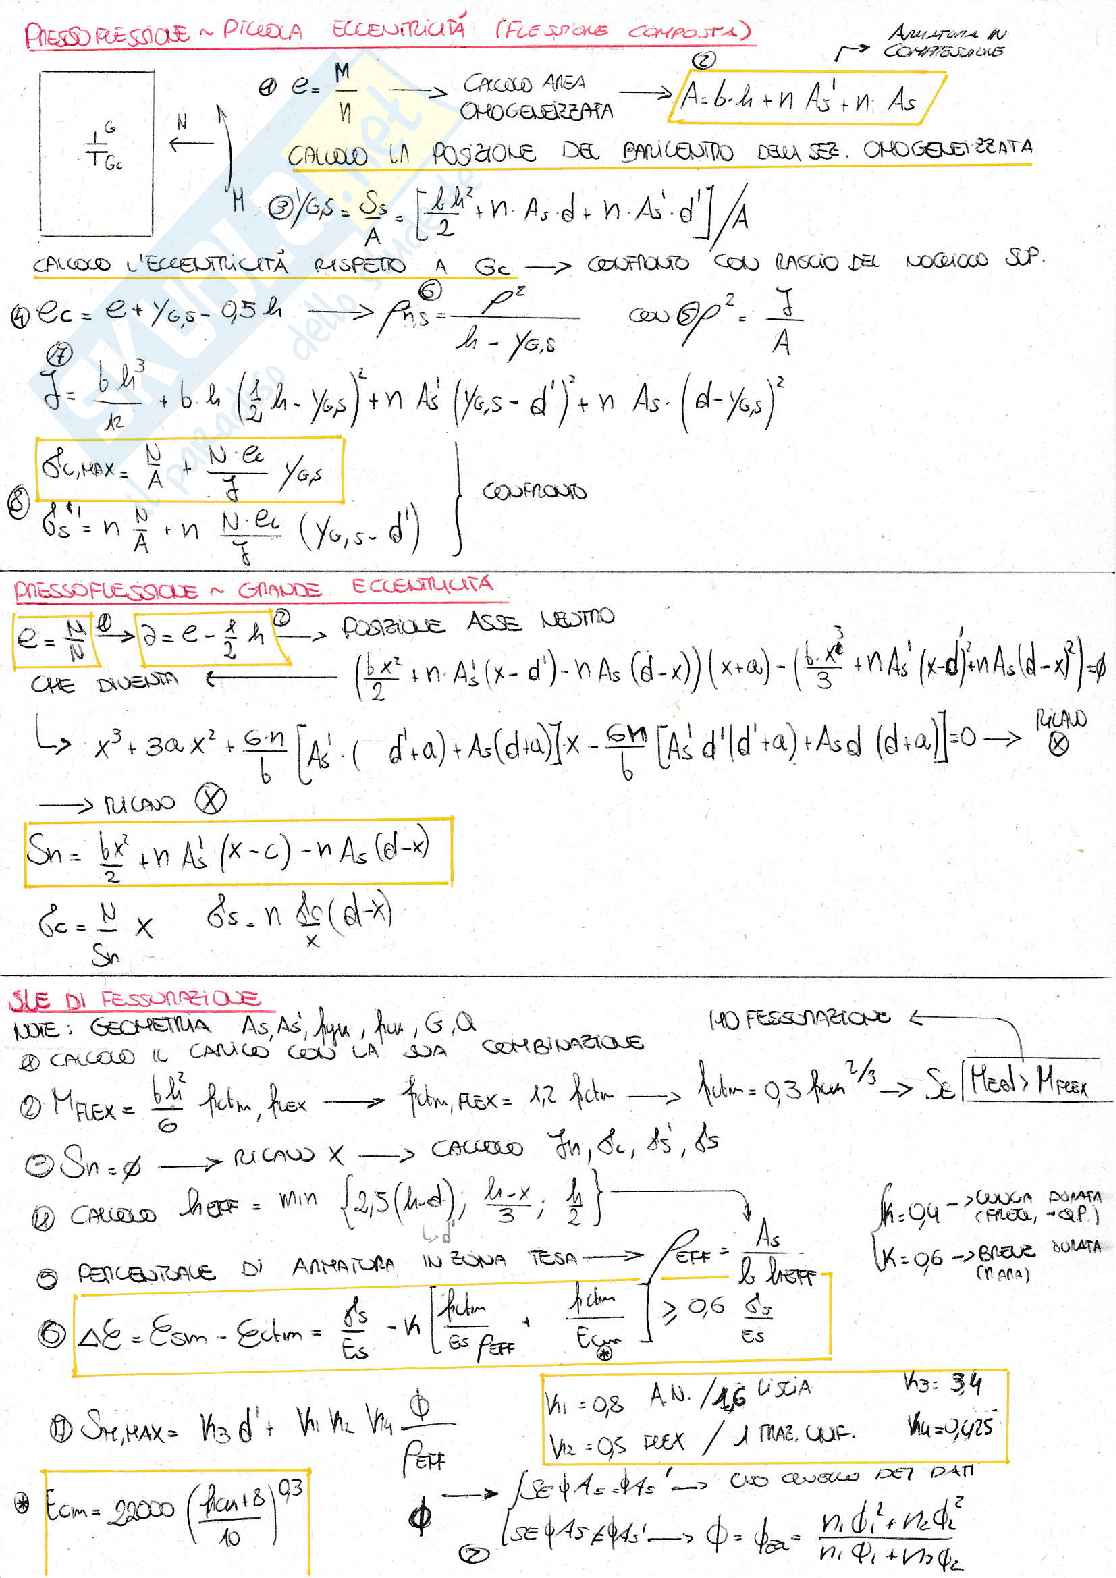 PRESSOFLESSIONE ~ PICCOLA ECCENTRICITÁ (FLESSIONE COMPOSTA)
ARMATURA IN COMPRESSIONE
① e = M/n → CALCOLO AREA OMOGENEIZZATA → ② A = b·h + n As' + n· As
G
Gc
N
M
CALCOLO LA POSIZIONE DEL BARICENTRO DELLA SEZ. OMOGENEIZZATA
③ YG,S = Ss/A = [bh²/2 + n· As·d + n· As'·d']/A
CALCOLO L'ECCENTRICITÁ RISPETTO A Gc → CONFRONTO CON RAGGIO DEL NOCCIOLO SUP.
④ ec = e + YG,S - 0,5h → ⑥ ρn,s = ρ²/(h - YG,S) CON ⑤ ρ² = J/A
⑦ J = bh³/12 + b·h (1/2 h - YG,S)² + n As' (YG,S - d')² + n As· (d - YG,S)²
⑧ σc,MAX = N/A + N·ec/J YG,S
σs' = n N/A + n N·ec/J (YG,S - d')
CONFRONTO
PRESSOFLESSIONE ~ GRANDE ECCENTRICITÁ
e = M/N ① → a = e - 1/2 h ② → POSIZIONE ASSE NEUTRO
CHE DIVENTA ← (bx²/2 + n·As'(x-d') - n As (d-x))(x+a) - (b·x³/3 + n As'(x-d')² + n As(d-x)²) = ø
↳ x³ + 3ax² + 6·n/b [As'·( d'+a) + As(d+a)]x - 6n/b [As'd'(d'+a) + As d (d+a)] = 0 → RICAVO ⓧ
→ RICAVO ⓧ
Sn = bx²/2 + n As' (x-c) - n As (d-x)
σc = N/Sn x σs = n σc/x (d-x)
SLE DI FESSURAZIONE
NOTE: GEOMETRIA As, As', fyk, fck, G, Q
HO FESSURAZIONE ←
① CALCOLO IL CARICO CON LA SUA COMBINAZIONE
② MFLEX = bh²/6 fctm,FLEX → fctm,FLEX = 1,2 fctm → fctm = 0,3 fck^2/3 → SE MEd > MFLEX
③ Sn = ø → RICAVO x → CALCOLO Jn, σc, σs', σs
④ CALCOLO hEFF = min {2,5(h-d); h-x/3; h/2}
↳ d'
k = 0,4 → LUNGA DURATA (FREQ, -Q.P.)
K = 0,6 → BREVE DURATA (RARA)
⑤ PERCENTUALE DI ARMATURA IN ZONA TESA → ρEFF = As/b hEFF
⑥ Δε = εsm - εctm = σs/Es - K [fctm/Es ρEFF + fctm/Ecm ⊛] ≥ 0,6 σs/Es
K1 = 0,8 A.N. / 1,6 LISCIA K3 = 3,4
K2 = 0,5 FLEX / 1 TRAZ. UNIF. K4 = 0,425
SR,MAX = K3 d' + K1 K2 K4 φ/ρEFF
⊛ Ecm = 22000 (fcm+8/10)^0,3
φ → SE φAs = φAs' → USO QUELLO DEI DATI
⑦ SE φAs ≠ φAs' → φ = φEQ = n1 φ1² + n2 φ2²/n1 φ1 + n2 φ2